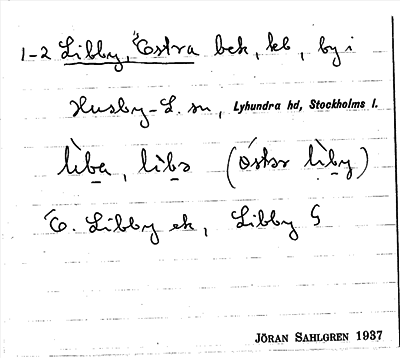 1-2 Libby, Östra bek, kb, by i
Husby-L. sn, Lyhundra hd, Stockholms l.
li̇̀ba, lìbə (östər lìby)
Ö. Libby ek, Libby G
JÖRAN SAHLGREN 1937